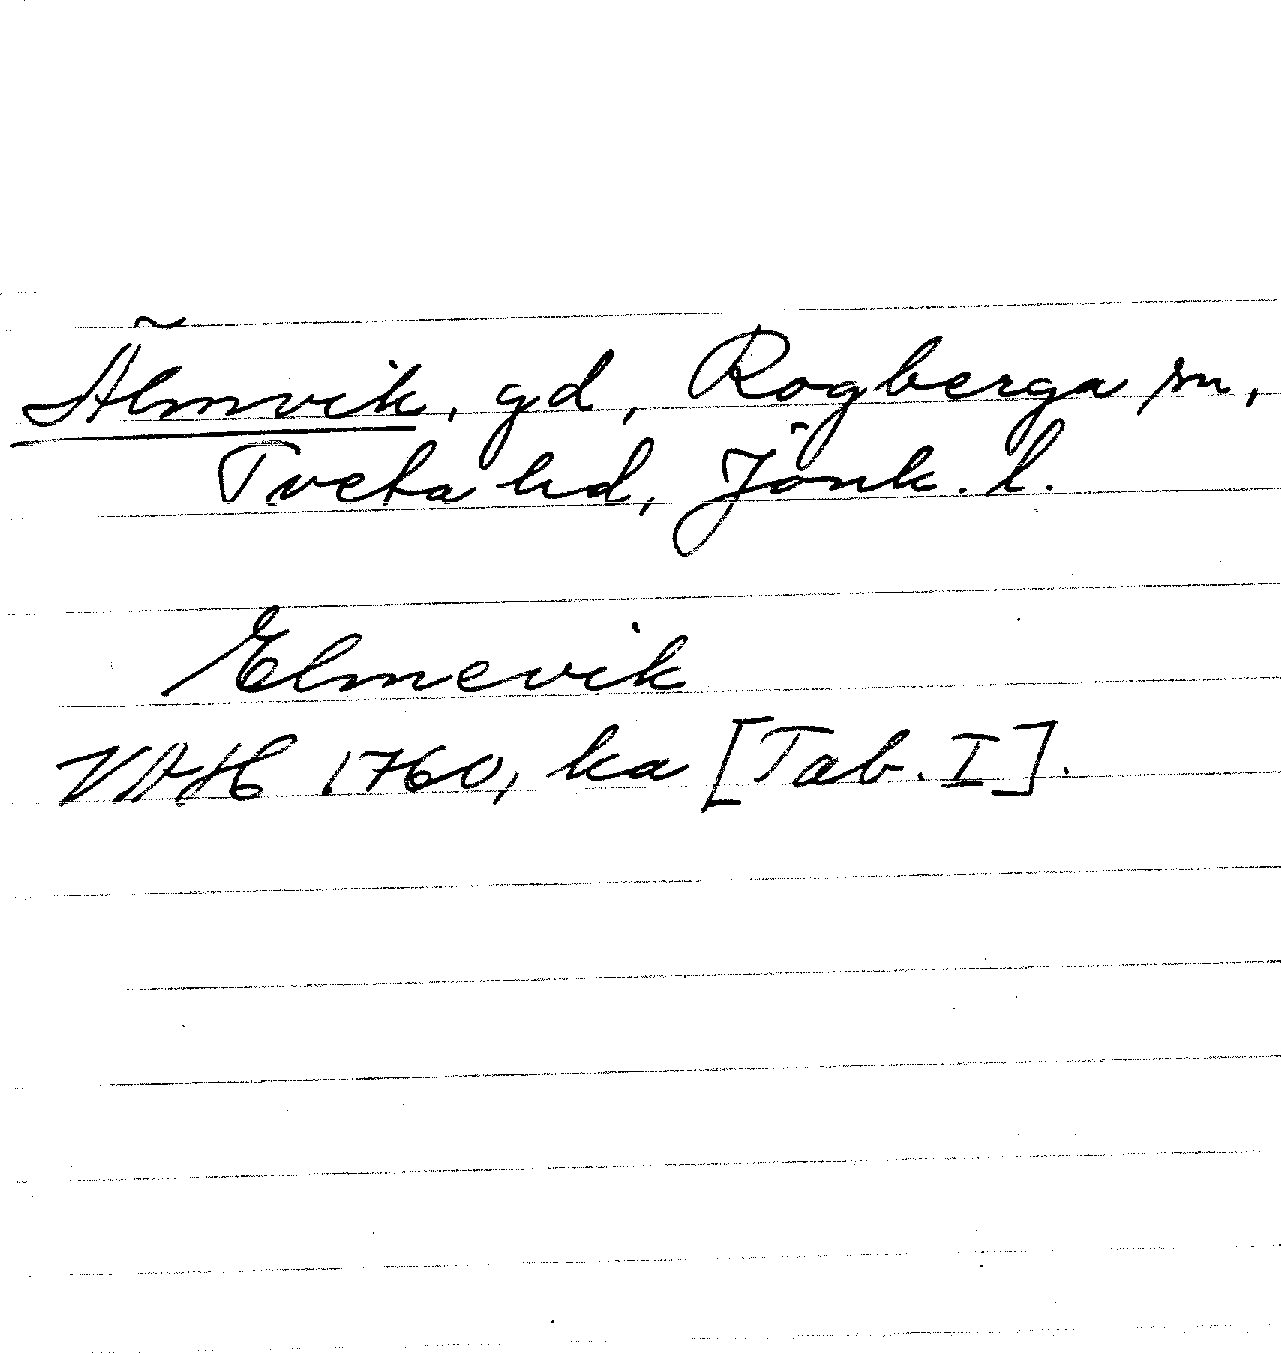 Älmvik, gd, Rogberga sn,
Tveta hd, Jönk. l.
Elmevik
VAH 1760, ka [Tab. I].